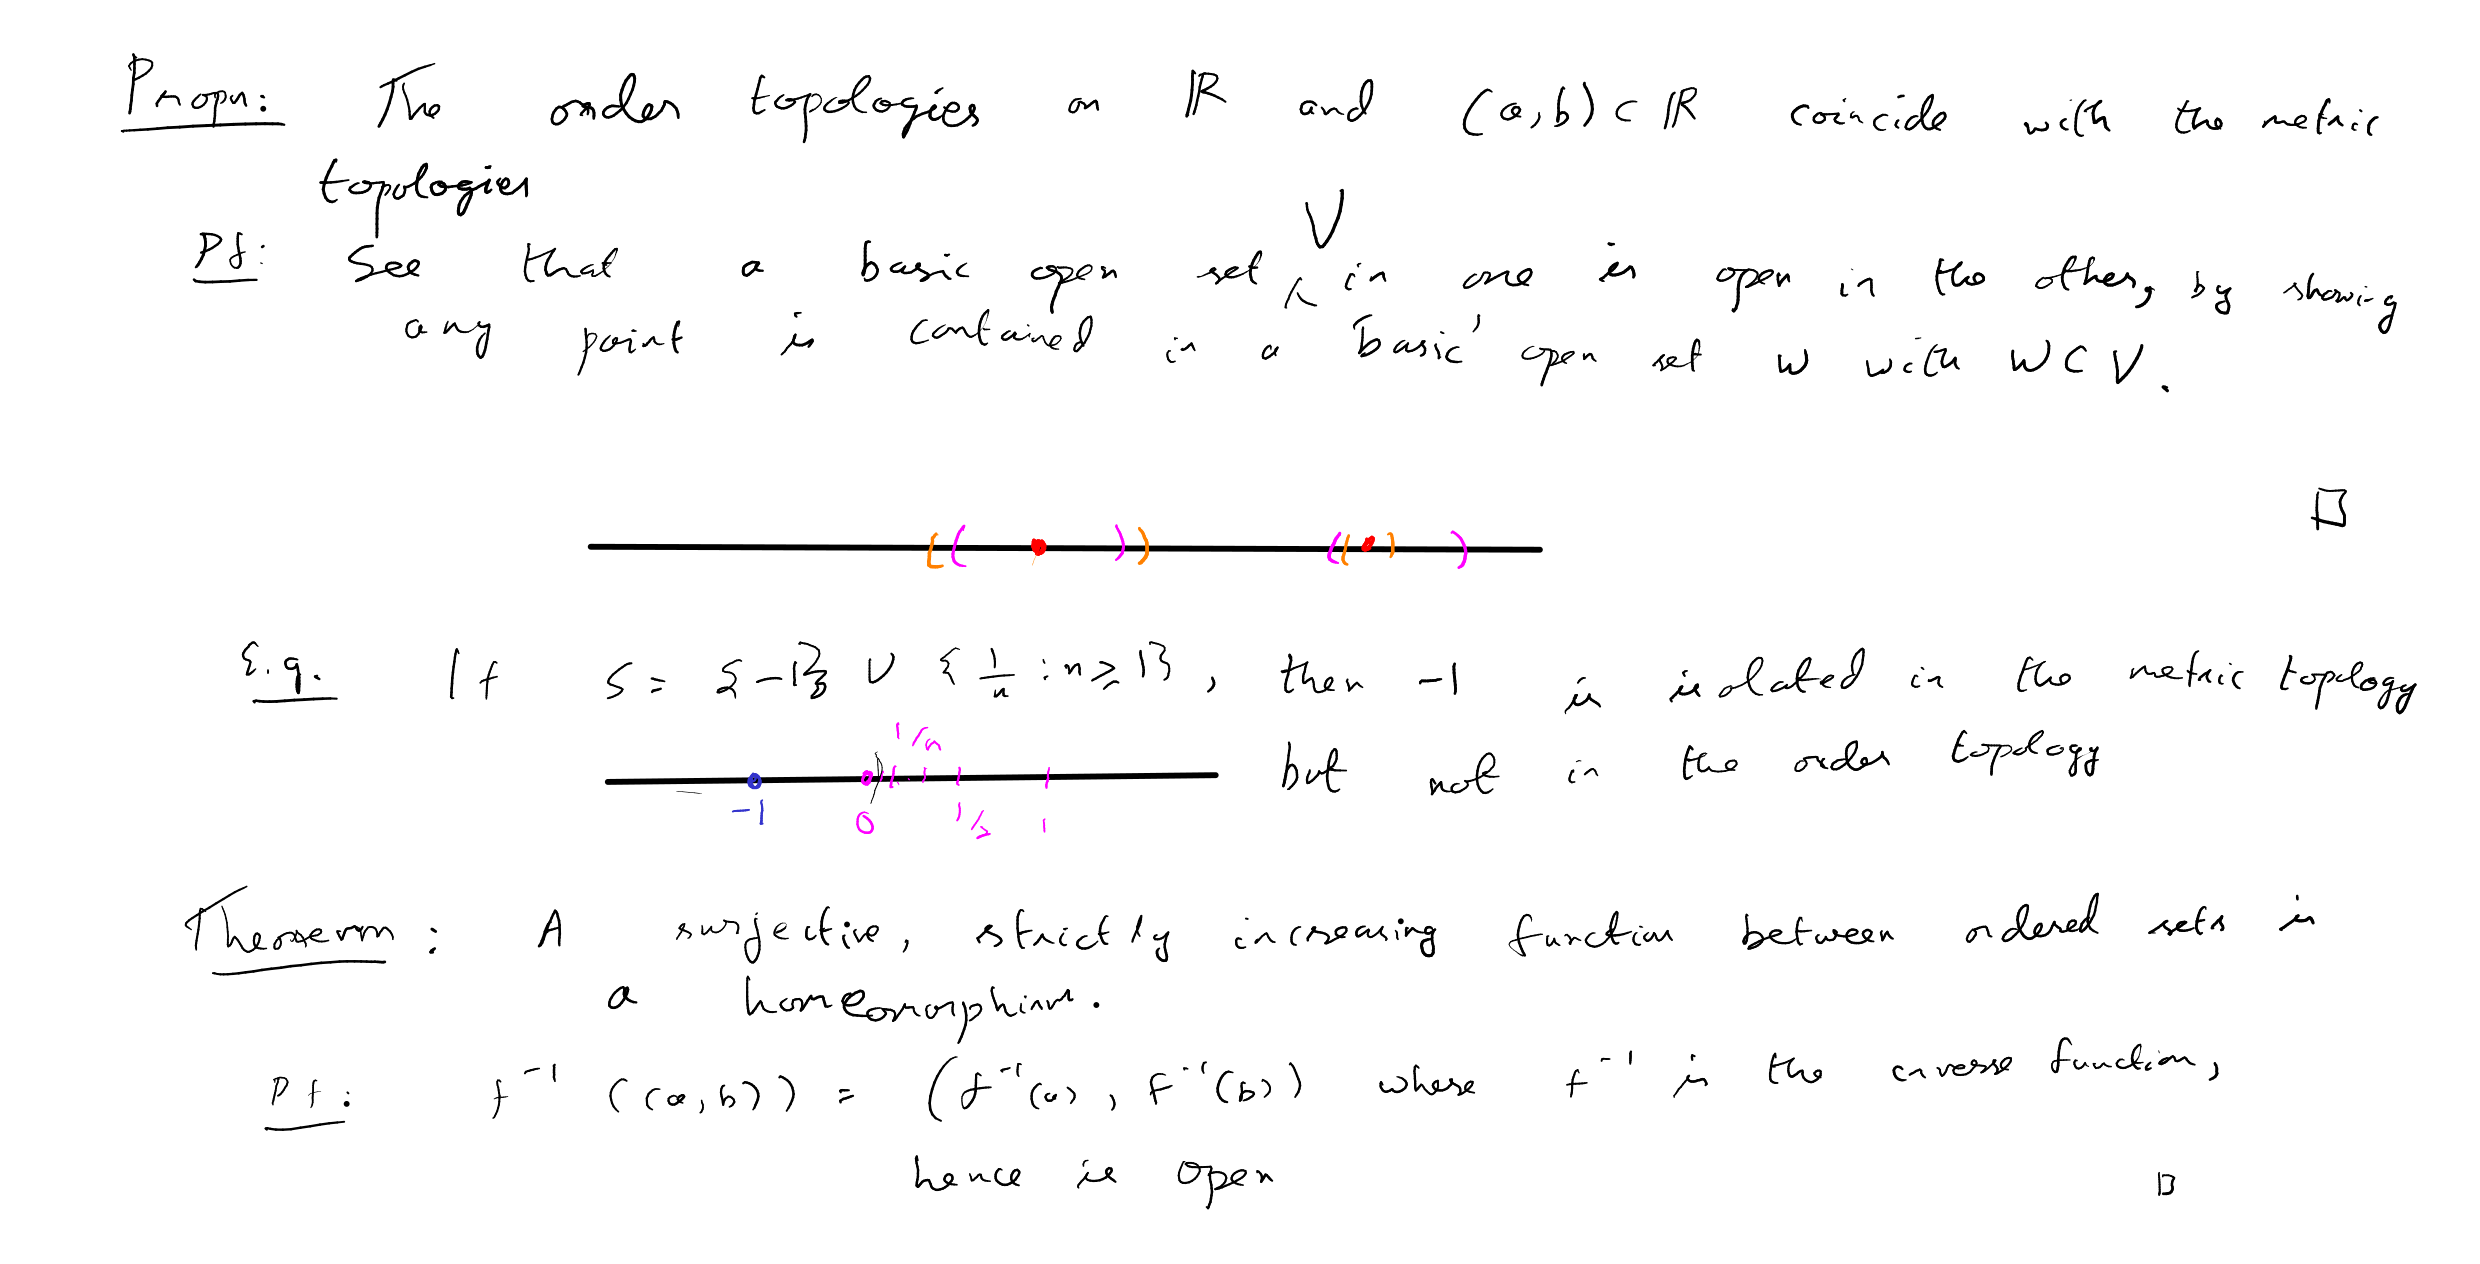 Propn: The order topologies on ℝ and (a,b) ⊂ ℝ coincide with the metric
topologies
Pf: See that a basic open set V in one is open in the other, by showing
any point is contained in a 'basic' open set W with W ⊂ V.
E.g. If S = {-1} ∪ {1/n : n ≥ 1}, then -1 is isolated in the metric topology
but not in the order topology
1/n
-1 0 1/2 1
Theorem: A surjective, strictly increasing function between ordered sets is
a homeomorphism.
Pf: f⁻¹((a,b)) = (f⁻¹(a), f⁻¹(b)) where f⁻¹ is the inverse function,
hence is open